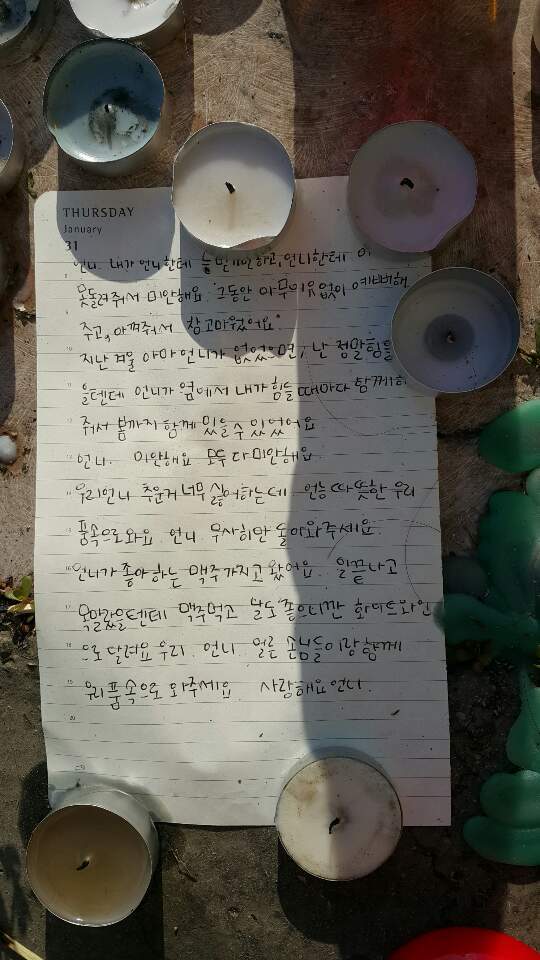 THURSDAY
January
31
언니. 내가 언니한테 늘 하고, 언니한테
못돌려줘서 미안해요. 그동안 아무이유없이 예뻐해
주고, 아껴줘서 참 고마웠어요.
지난 겨울 아마 언니가 없었으면, 난 정말 힘들
을텐데 언니가 옆에서 내가 힘들때마다 함께
줘서 봄까지 함께 있을 수 있었어요
언니. 미안해요 모두 다 미안해요.
우리언니 추운거 너무 싫어하는데 언능 따뜻한 우리
품속으로 와요. 언니 무사히만 돌아와주세요.
언니가 좋아하는 맥주 가지고 왔어요. 일끝나고
목말랐을텐데 맥주먹고 날도 좋으니깐 화이트와인
으로 달려요 우리. 언니. 얼른 손님들이랑 함께
우리 품속으로 와주세요. 사랑해요 언니.